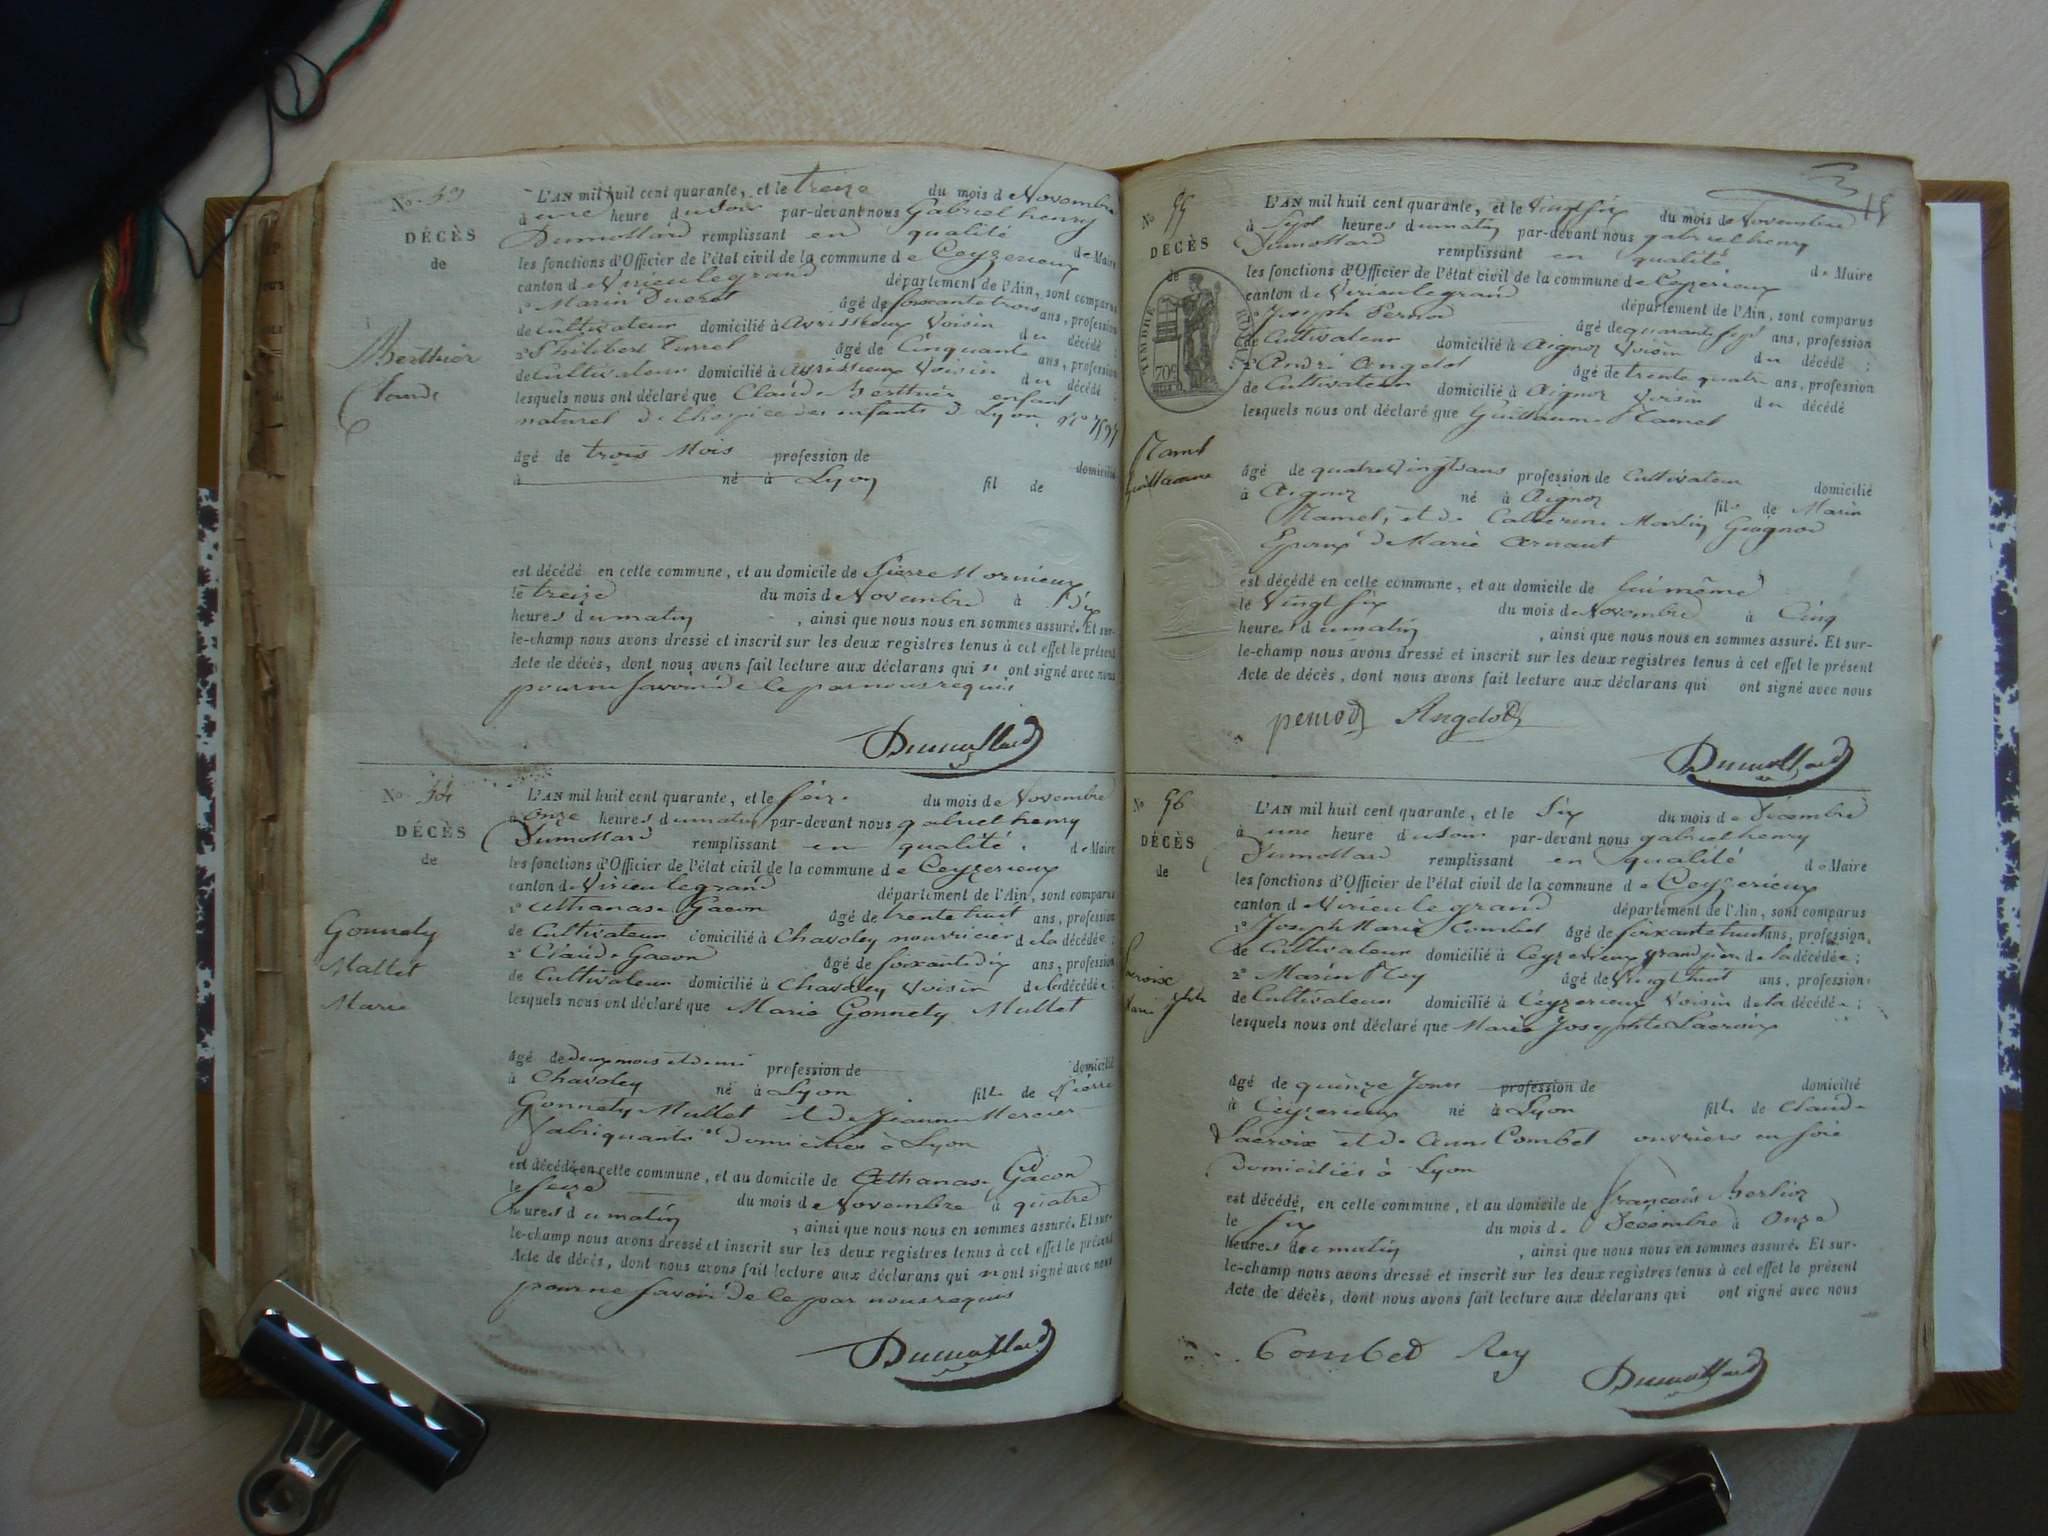 No. 53
DÉCÈS
de
Berthier
Claude
L'AN mil huit cent quarante, et le treize du mois de Novembre
à une heure du soir par-devant nous Gabriel henry
Dumollard remplissant en qualité de Maire
les fonctions d'Officier de l'état civil de la commune de Ceyzerieux
canton de Virieulegrand département de l'Ain, sont comparus
1° Marin âgé de soixante trois ans, profession
de Cultivateur domicilié à avrissieux Voisin du décédé ;
2° Philibert Turrel âgé de Cinquante ans, profession
de Cultivateur domicilié à avrissieux Voisin du décédé ;
lesquels nous ont déclaré que Claude Berthier enfant
naturel de lhospice des enfants de Lyon, n°
âgé de trois Mois profession de domicilié
à né à Lyon fil de
est décédé en cette commune, et au domicile de Pierre Mornieux
le treize du mois de Novembre à Dix
heures du matin , ainsi que nous nous en sommes assuré. Et sur-
le-champ nous avons dressé et inscrit sur les deux registres tenus à cet effet le présent
Acte de décès, dont nous avons fait lecture aux déclarans qui n' ont signé avec nous
pour ne savoir de ce par nous requis
Dumollard
No. 54
DÉCÈS
de
Gonnety
Mallet
Marie
L'AN mil huit cent quarante, et le seize du mois de Novembre
à onze heures du matin par-devant nous gabriel henry
Dumollard remplissant en qualité de Maire
les fonctions d'Officier de l'état civil de la commune de Ceyzerieux
canton de Virieulegrand département de l'Ain, sont comparus
1° Athanase Gacon âgé de trente huit ans, profession
de Cultivateur domicilié à Chavoley nourricier de la décédée ;
2° Claude Gacon âgé de soixante dix ans, profession
de Cultivateur domicilié à Chavoley Voisin de la décédée ;
lesquels nous ont déclaré que Marie Gonnety Mullet
âgé de deux mois et demi profession de domicilié
à Chavoley né à Lyon fille de Pierre
Gonnety Mullet et de Jeanne Mercier
fabriquants et domiciliés à Lyon
est décédé en cette commune, et au domicile de Athanase Gacon
le seize du mois de Novembre à quatre
heures du matin , ainsi que nous nous en sommes assuré. Et sur-
le-champ nous avons dressé et inscrit sur les deux registres tenus à cet effet le présent
Acte de décès, dont nous avons fait lecture aux déclarans qui n ont signé avec nous
pour ne savoir de ce par nous requis
Dumollard
No 55
DÉCÈS
de
TIMBRE ROYAL
70c
Ramel
Guillaume
L'AN mil huit cent quarante, et le Vingt six du mois de Novembre
à Sept heures du matin par-devant nous gabriel henry
Dumollard remplissant en qualité de Maire
les fonctions d'Officier de l'état civil de la commune de Ceyzerieux
canton de Virieulegrand département de l'Ain, sont comparus
1° Joseph Pernod âgé de quarante sept ans, profession
de Cultivateur domicilié à Aignoz Voisin du décédé ;
2° André Angelot âgé de trente quatre ans, profession
de Cultivateur domicilié à Aignoz Voisin du décédé
lesquels nous ont déclaré que Guillaume Ramel
âgé de quatre Vingts ans profession de Cultivateur domicilié
à Aignoz né à Aignoz fils de Marin
Ramel, et de Catherine Martin
Epoux de Marie Arnaut
est décédé en cette commune, et au domicile de lui même
le Vingt six du mois de Novembre à Cinq
heures du matin , ainsi que nous nous en sommes assuré. Et sur-
le-champ nous avons dressé et inscrit sur les deux registres tenus à cet effet le présent
Acte de décès, dont nous avons fait lecture aux déclarans qui ont signé avec nous
pernod Angelot
Dumollard
No 56
DÉCÈS
de
Lacroix
L'AN mil huit cent quarante, et le Six du mois de Décembre
à une heure du soir par-devant nous gabriel henry
Dumollard remplissant en qualité de Maire
les fonctions d'Officier de l'état civil de la commune de Ceyzerieux
canton de Virieu le grand département de l'Ain, sont comparus
1° Joseph Marie Combet âgé de soixante huit ans, profession
de Cultivateur domicilié à Ceyzerieux grand père de la décédée ;
2° Marin Rey âgé de Vingt huit ans, profession
de Cultivateur domicilié à Ceyzerieux Voisin de la décédée ;
lesquels nous ont déclaré que Marie Josephte Lacroix
âgé de quinze Jours profession de domicilié
à Ceyzerieux né à Lyon fille de Claude
Lacroix et de Anne Combet ouvriers en soie
Domiciliés à Lyon
est décédé, en cette commune, et au domicile de François Berlioz
le six du mois de Décembre à Onze
heures du matin , ainsi que nous nous en sommes assuré. Et sur-
le-champ nous avons dressé et inscrit sur les deux registres tenus à cet effet le présent
Acte de décès, dont nous avons fait lecture aux déclarans qui ont signé avec nous
Combet Rey
Dumollard